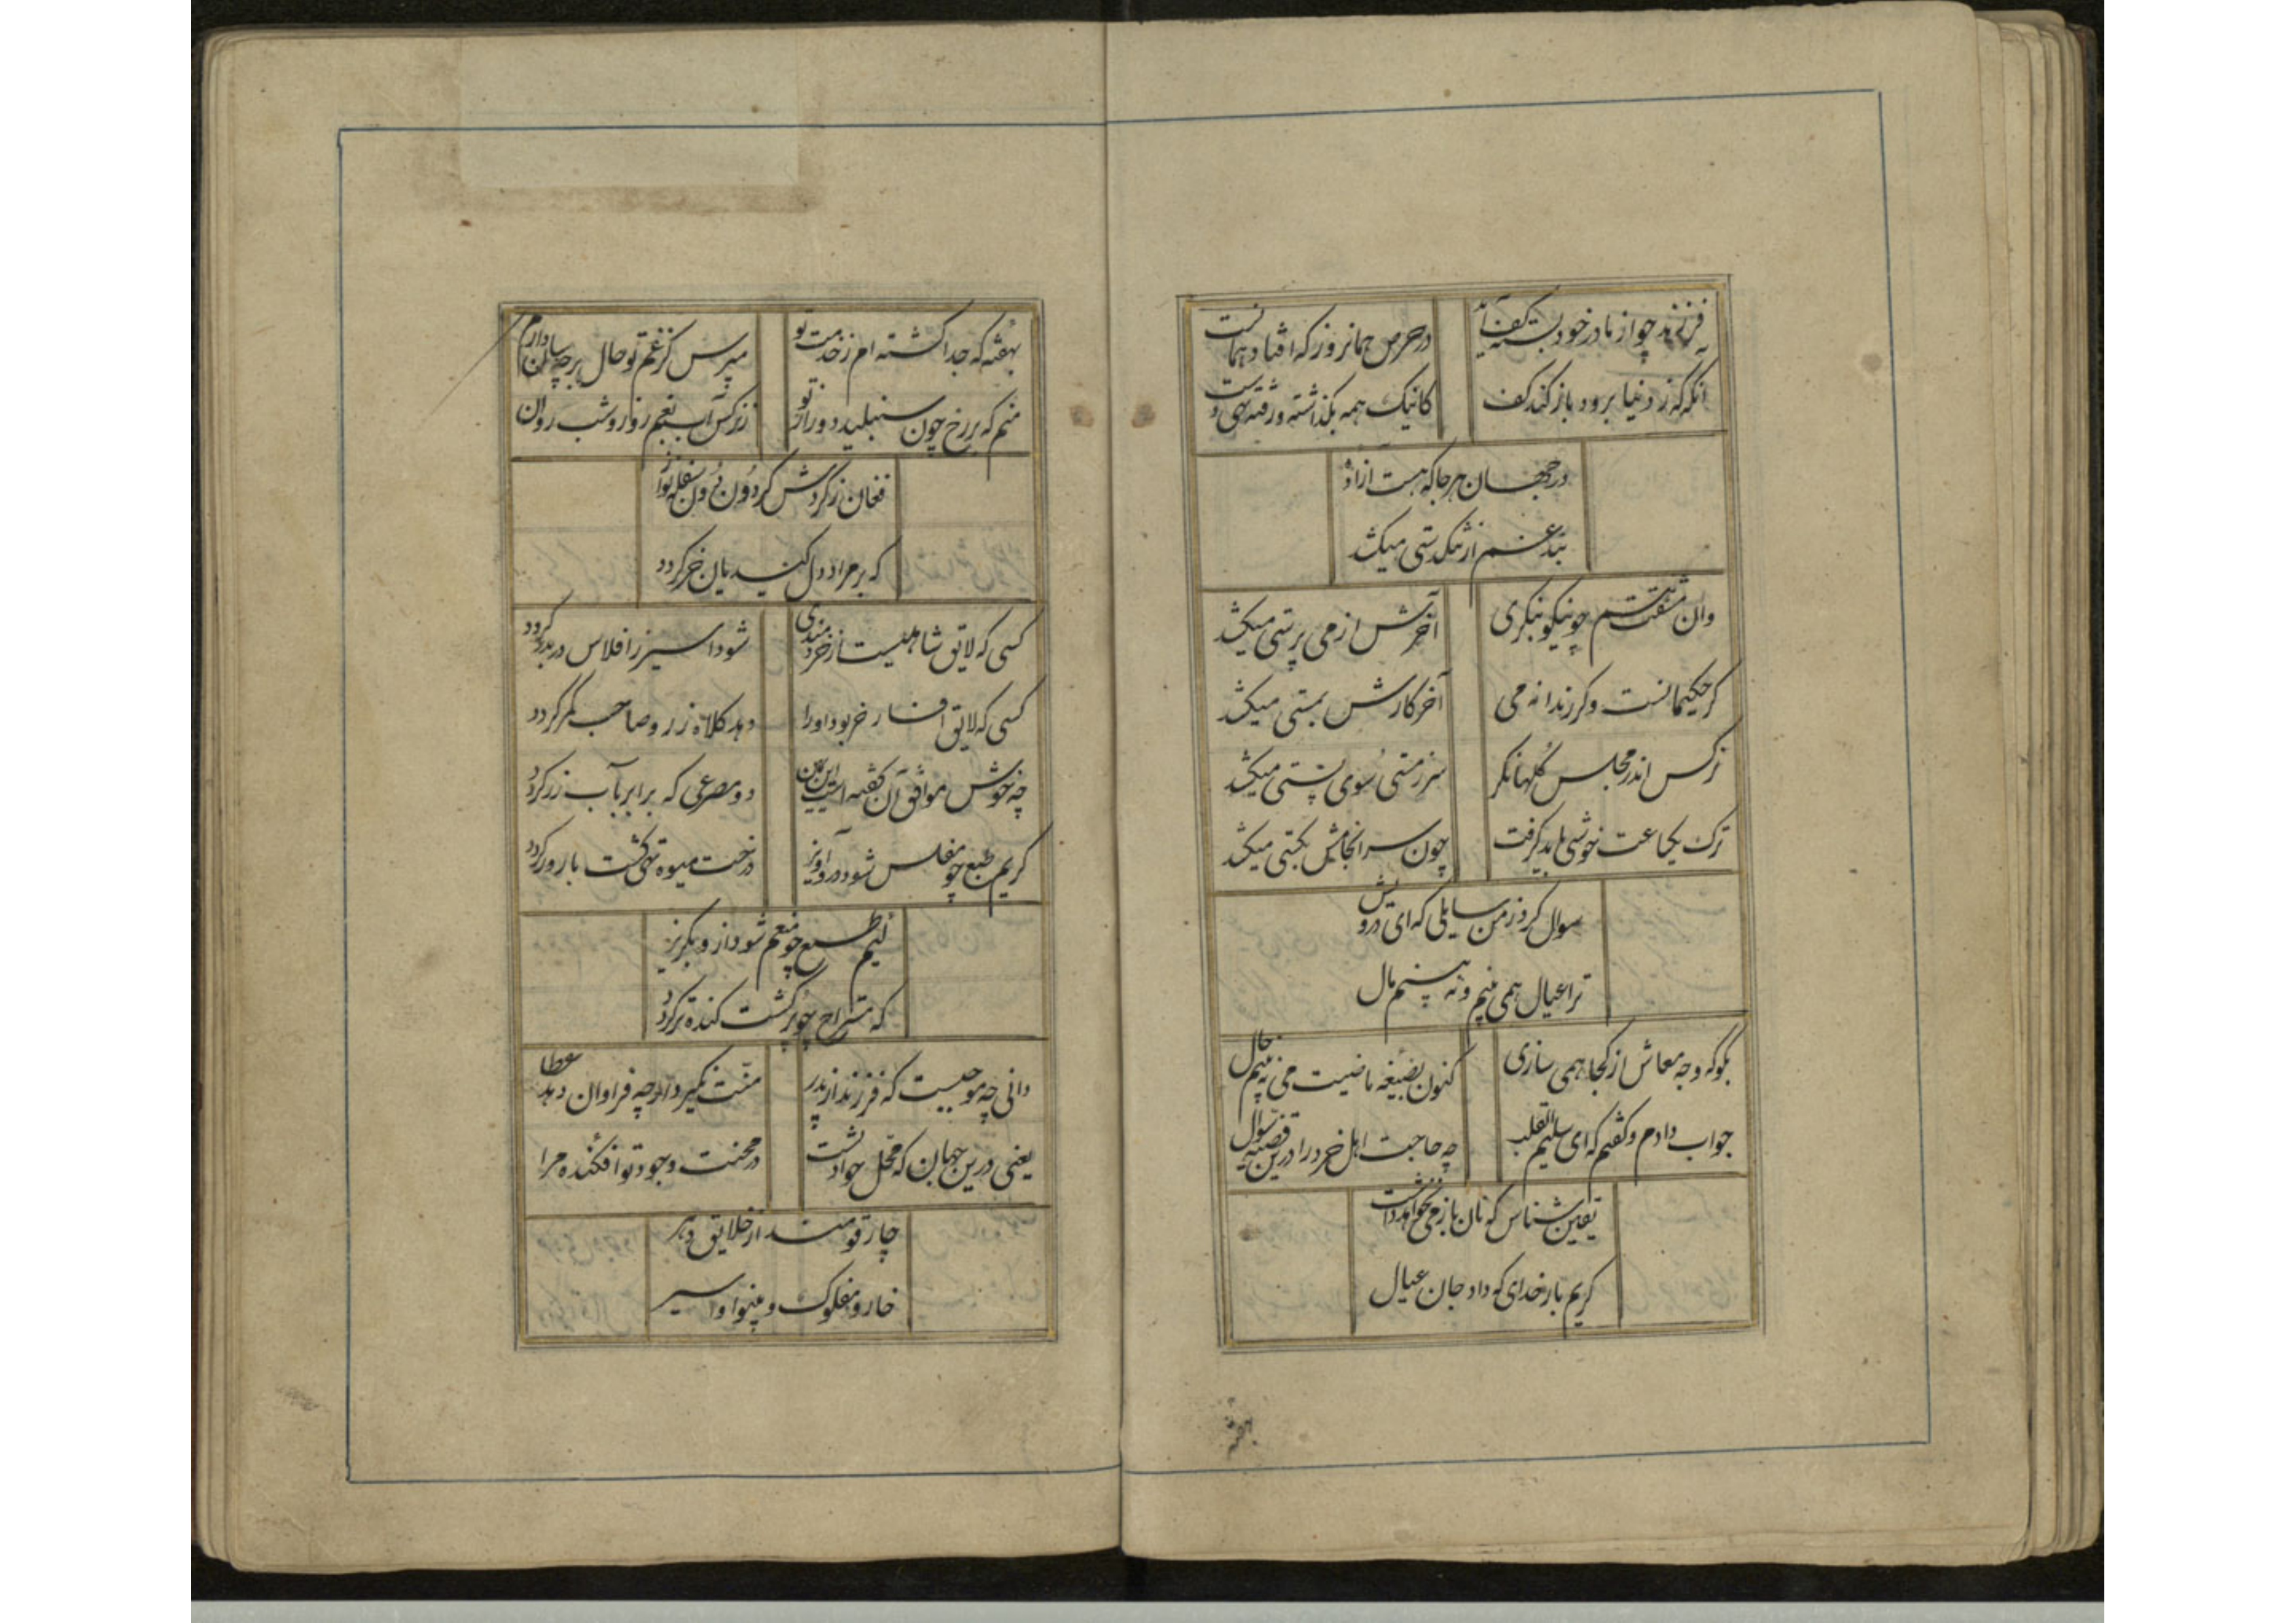 فرزند چو از مادر خود بسته کف آید
در حرص همانروز که افتاد همانست
آنکه که ز دنیا برود باز کند کف
کانیک همه بگذاشته و رفته تهی دست
در جهان هر جا که هست آزاده
بند غم از تنگدستی میکشد
وان چو نیکو بنگری
آخرش از می پرستی میکشد
گر حکیمانست و گر رندانه می
آخر کارش بمستی میکشد
نرکس اندر مجلس گلها نگر
سر ز مستی سوی پستی میکشد
ترک یکساعت خوشی باید گرفت
چون سرانجامش بکستی میکشد
سوال کرد ز من سایلی که ای درویش
ترا عیال همی بینم و نه بینم مال
بگو که وجه معاش از کجا همی سازی
کنون می نه بینم حال
جواب دادم و گفتم که ای سلیم القلب
چه حاجبت اهل خرد را درین قضیه سوال
یقین شناس که نان باز می نخواهد داشت
کریم بار خدای که داد جان عیال
بهفته
بهفته که جدا گشته ام ز خدمت تو
مپرس کز غم تو حال بر چه سان دارم
منم که بر رخ چون شنبلید دور از تو
ز نرکس آب بقم روز و شب روان
فغان ز گردش گردون دون سفله نواز
که بر مراد دل کند یان خر گردد
کسی که لایق شاهیست از خردمندی
شود اسیر ز افلاس در بدر گردد
کسی که لایق افسار خر بود او را
دهد کلاه زر و صاحب کمر گردد
چه خوش موافق آن گفته است ابن یمین
دو مصرعی که برابر بآب زر گردد
کریم طبع چو مفلس شود درو آویز
درخت میوه تهی گشت بارور گردد
لئیم طبع چو منعم شود ازو بگریز
که مستراح چو پر گشت گنده تر گردد
دانی چه موجبست که فرزند از پدر
منت نگیرد ار چه فراوان دهد عطا
یعنی درین جهان که محل حوادثست
در محنت وجود تو افکنده مرا
چار قومند از خلایق دهر
خار و مفلوک و بینوا و اسیر